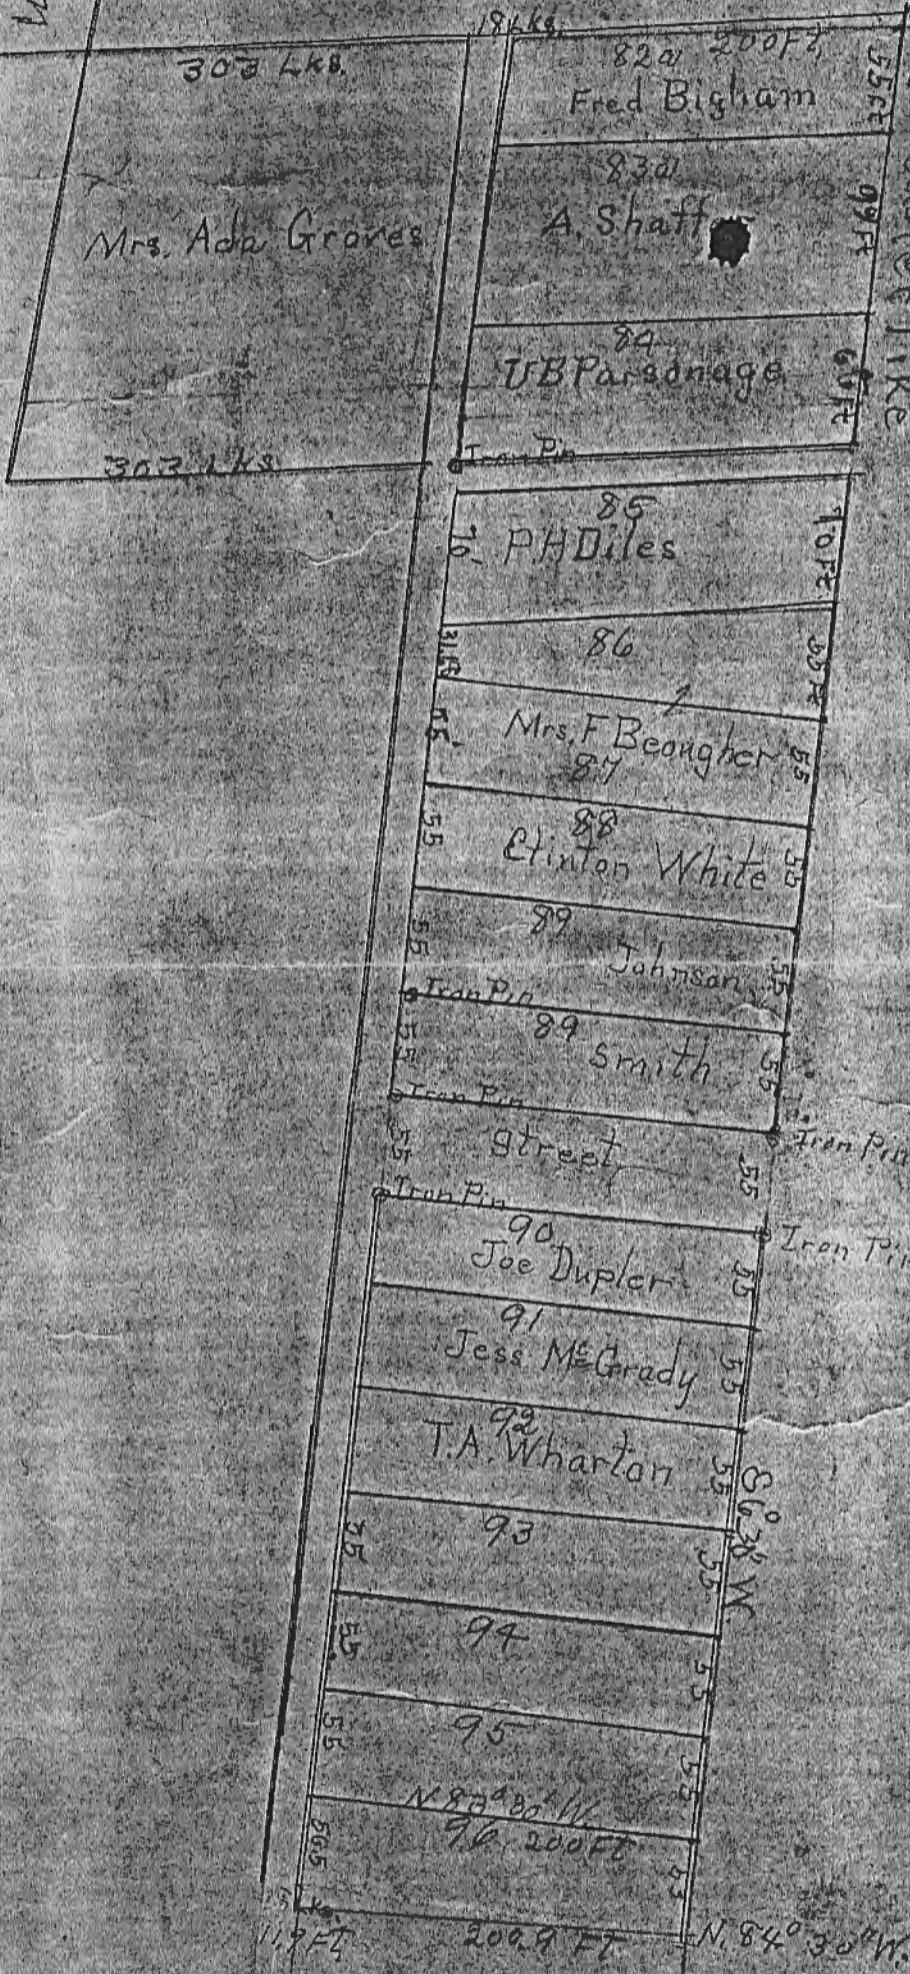 18 Lks.
303 Lks.
82a 200 Ft,
Fred Bigham
55 Ft
83a
A. Shaff
99 Ft
Mrs. Ada Groves
84
UB Parsonage
60 Ft
Pike
303 Lks
Iron Pin
85
P H Diles
70
70 Ft
86
31.
55 Ft
Mrs. F Beougher
87
55
55
88
Clinton White
55
55
89
Johnson
55
55
Iron Pin
89
Smith
55
55
Iron Pin
Iron Pin
Street
55
55
Iron Pin
Iron Pin
90
Joe Dupler
55
91
Jess McGrady
55
92
T.A. Wharton
55
S 6° 30' W
93
55
55
94
55
55
95
55
55
N 83° 30' W.
96 200 Ft
56.5
53
11.9 Ft
200.9 FT
N. 84° 30" W.